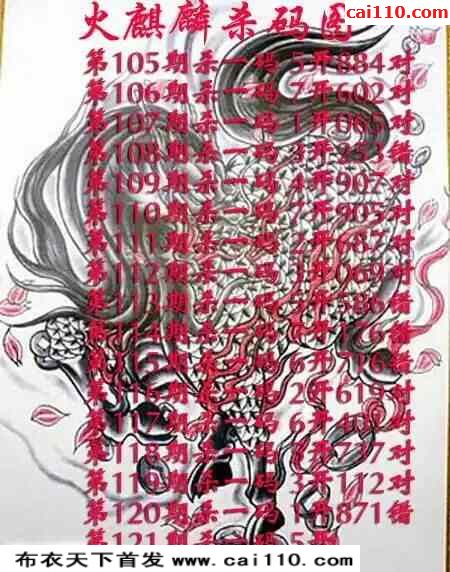 cai110.com
火麒麟杀码图
第105期杀一码 5开884对
第106期杀一码 7开602对
第107期杀一码 1开065对
第108期杀一码 3开253错
第109期杀一码 4开907对
第110期杀一码 7开905对
第111期杀一码 2开687对
第112期杀一码 3开069对
第113期杀一码 5开586错
第114期杀一码 开176错
第115期杀一码 6开
第116期杀一码 2开619对
第117期杀一码 6开 对
第118期杀一码 开777对
第119期杀一码 3开112对
第120期杀一码 1开871错
第121期杀一码 5开
布衣天下首发 www.cai110.com